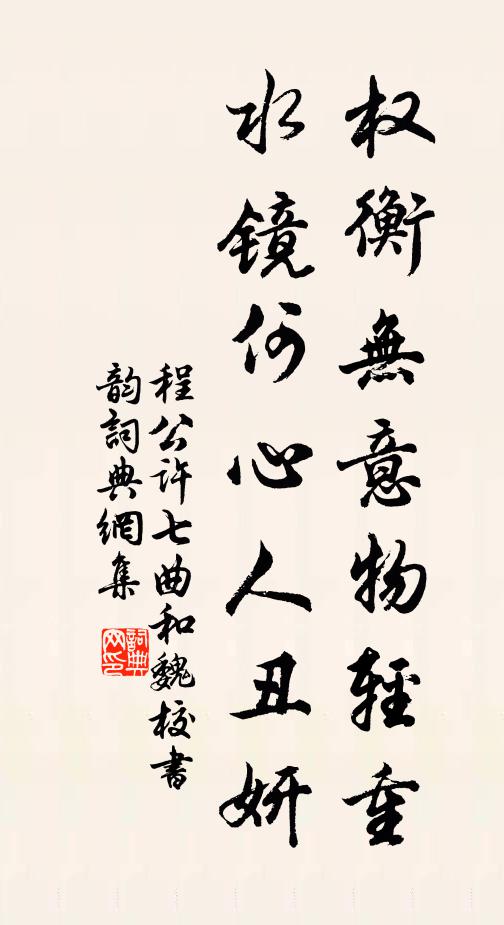 权衡無意物輕重
水镜何心人丑妍
程公许七曲和魏校書
韵詞典網集
詞典网印